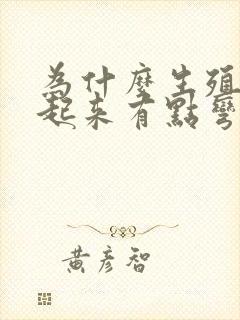 為什麼生殖
起來有點彎
黃彥智